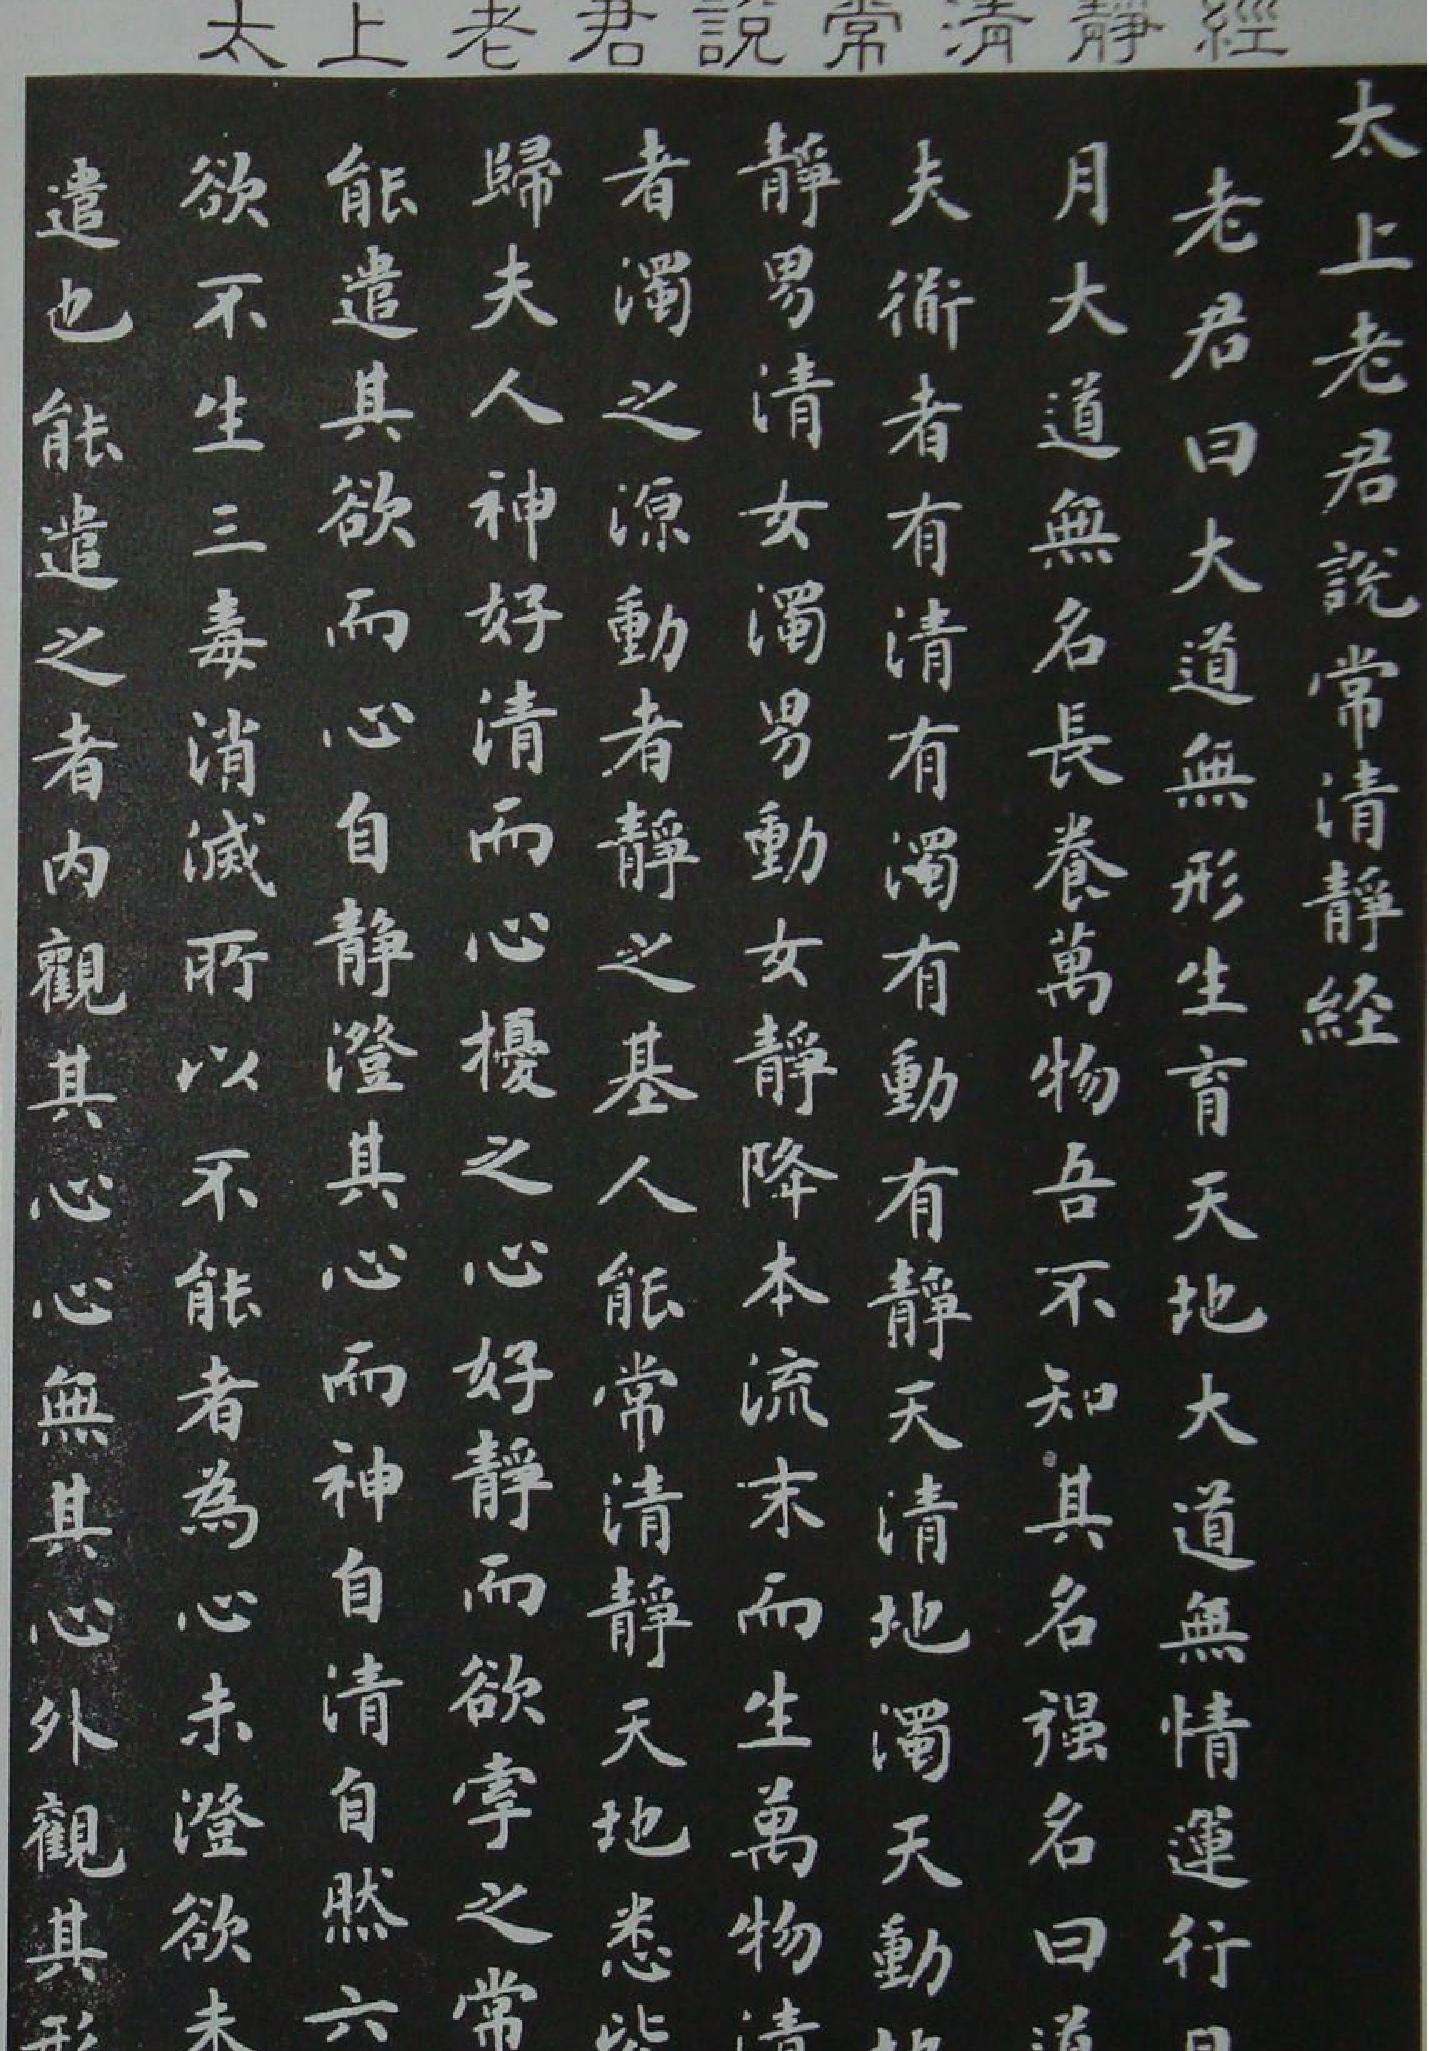 太上老君說常清靜經
太上老君說常清靜経
老君曰大道無形生育天地大道無情運行日
月大道無名長養萬物吾不知其名强名曰道
夫衜者有清有濁有動有靜天清地濁天動地
靜男清女濁男動女靜降本流末而生萬物清
者濁之源動者靜之基人能常清靜天地悉皆
歸夫人神好清而心擾之心好靜而欲牽之常
能遣其欲而心自静澄其心而神自清自然六
欲不生三毒消滅所以不能者為心未澄欲未
遣也能遣之者内觀其心心無其心外觀其形